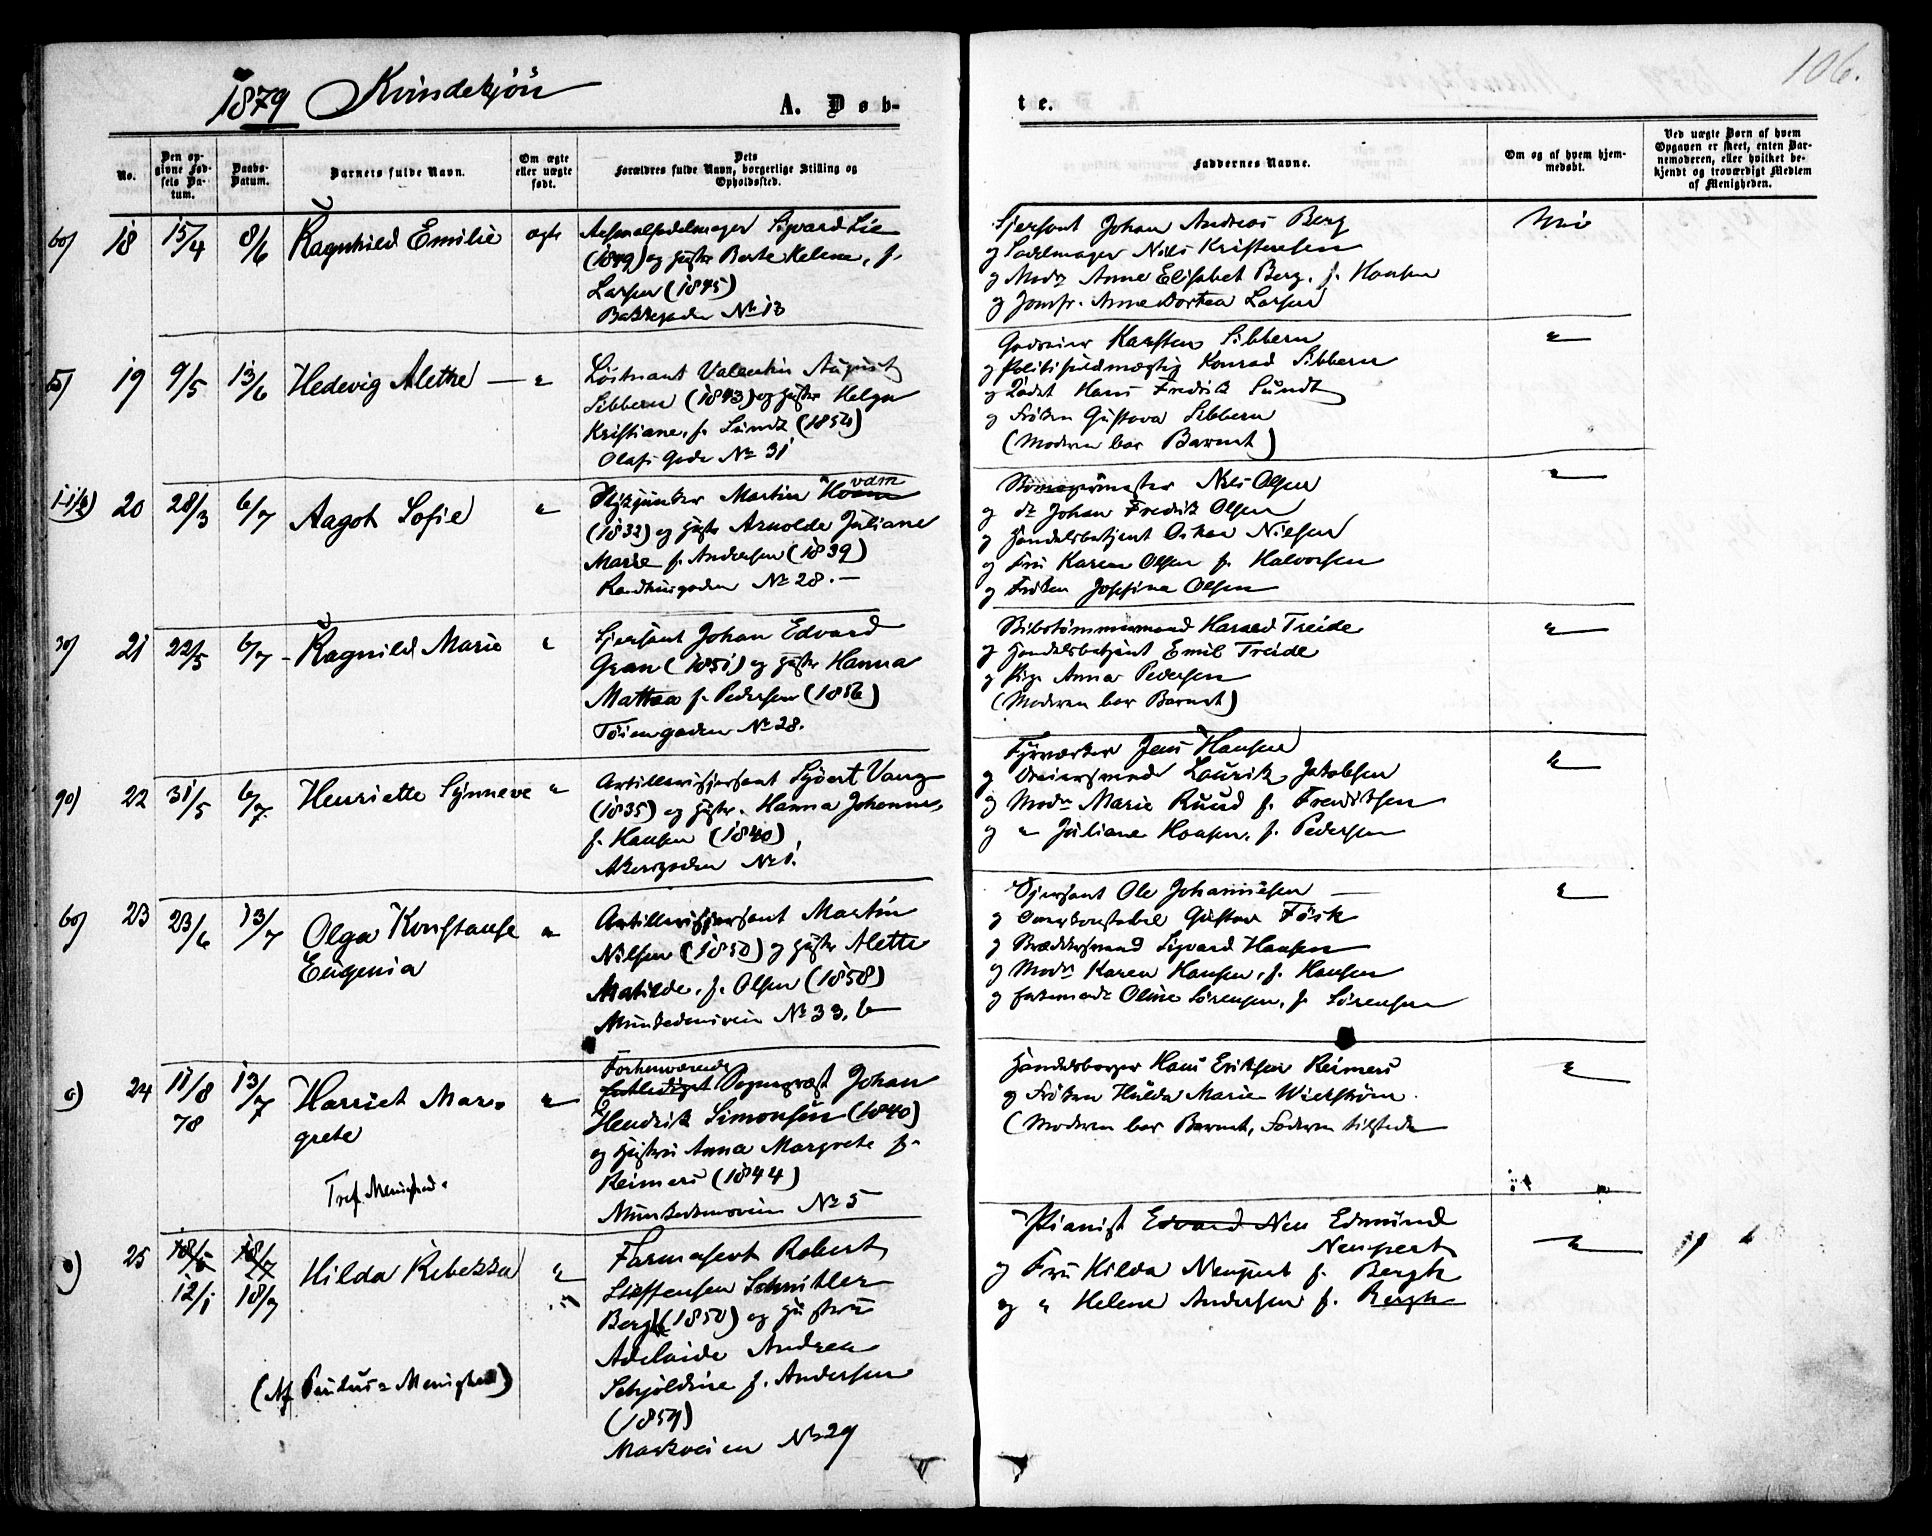 106.
1879 Kvindekjön
A. Døb-
te.
No.
Den op-
givne Fød-
sels Da-
tum.
Daabs-
Datum.
Barnets fulde Navn.
Om ægte
eller uægte
født.
Dets
Forældres fulde Navn, borgerlige Stilling og
Opholdssted.
Faddernes Navne.
Om og af hvem hjem-
medøbt.
Ved uægte Børn af hvem
Opgaven er skeet, enten Bar-
nemoderen, eller hvilket be-
kjendt og troværdigt Medlem
af Menigheden.
60) 18 15/4 8/6 Ragnhild Emilie ægte
Sigvard Lie
(1849) og Hustr Berte Helene, f.
Larsen (1845)
Bakkegaden No 13
Sjersant Johan Andreas Berg
og Sadelmager Nils Kristensen
og Mad. Anne Elisabet Berg, f. Hansen
og Jomfr. Anne Dortea Larsen
19 9/5 13/6 Hedevig Alethe — "
Løitnant Valentin August
Sibbern (1843) og Hustr Helga
Kristiane, f. Sundt (1854)
Olafs Gade No 31
Karsten Sibbern
og Politifuldmægtig Konrad Sibbern
og Kadet Hans Fredrik Sundt
og Frøken Gustava Sibbern
(Moderen bar Barnet)
20 28/3 6/7 Aagot Sofie "
Martin
(1832) og Hustr Arnolda Juliane
Marie f. Andersen (1839)
Raadhusgaden No 28. —
Nils Olsen
og do Johan Fredrik Olsen
og Handelsbetjent Oskar Nielsen
og Fru Karen Olsen f. Halvorsen
og Frøken Josefine Olsen
30) 21 22/5 6/7 - Ragnild Marie "
Sjersant Johan Edvard
Gran (1851) og Hustr Hanna
Mattea f. Pedersen (1856)
Töiengaden No 28.
Skibstømmermand Harald Treide
og Handelsbetjent Emil Treide
og Pige Anna Pedersen
(Moderen bar Barnet)
90) 22 31/5 6/7 Henriette Synneve "
Artillerisjersant Sjvert Vang
(1835) og Hustr. Hanna Johanne,
f. Hansen (1840)
Akersgaden No 1.
Fyrverker Jens Hansen
og Laurits Jakobsen
og Mad. Marie Ruud f. Fredriksen
og " Juliane Hansen, f. Pedersen
60) 23 23/6 13/7 Olga Konstanse "
Eugenia
Artillerisjersant Martin
Nilsen (1850) og Hustr Alette
Matilde, f. Olsen (1858)
Munkedamsveien No 33. b
Sjersant Ole Johannesen —
og Overkonstabel Gustav Fösk
og Skræddersvend Sigvard Hansen
og Mad. Karen Hansen, f. Hansen
og Oline Sørensen, f. Sørensen
24 11/8 13/7 Harriet Mar- "
78
grete
Tref. Menighed.
Forhenværende
Entlediget Sogneprest Johan
Hendrik Simonsen (1840)
og Hustru Anna Margrete f.
Reimers (1844)
Munkedamsveien No 5
Handelsborger Hans Eriksen Reimers
og Frøken Hulda Marie Wickstrøm.
(Moderen bar Barnet, Faderen tilstede
25 18/5 18/7 Hilda Rebekka "
12/1 18/7
(Af Paulus = Menighed)
Farmasevt Robert
Steffensen Schnitler
Bergh (1850) og Hustru
Adelaide Andrea
Schjöldine f. Andersen
(1854)
Markveien No 29
Pianist Edvard Neu Edmund
Neupert
og Fru Hilda Neupert f. Bergh
og " Helene Andersen f. Bergh